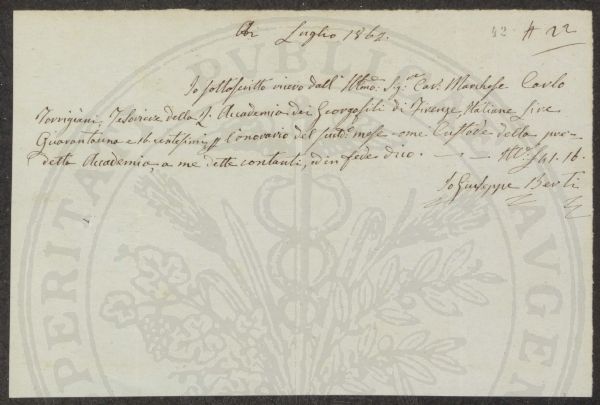 Luglio 1862.
42 # 22
Io sottoscritto ricevo dall' Illmo: Sigre Cav. Marchese Carlo
Torrigiani, Tesoriere della R. Accademia dei Georgofili di Firenze, Italiane Lire
Quarantuna e 16 centesimi p l'onorario del sudo mese come Custode della pre-
detta Accademia, a me dette contanti, ed in fede dico. - - - 41. 16.
Io Giuseppe Berti
PUBLICAE
PERITATI AUGEN